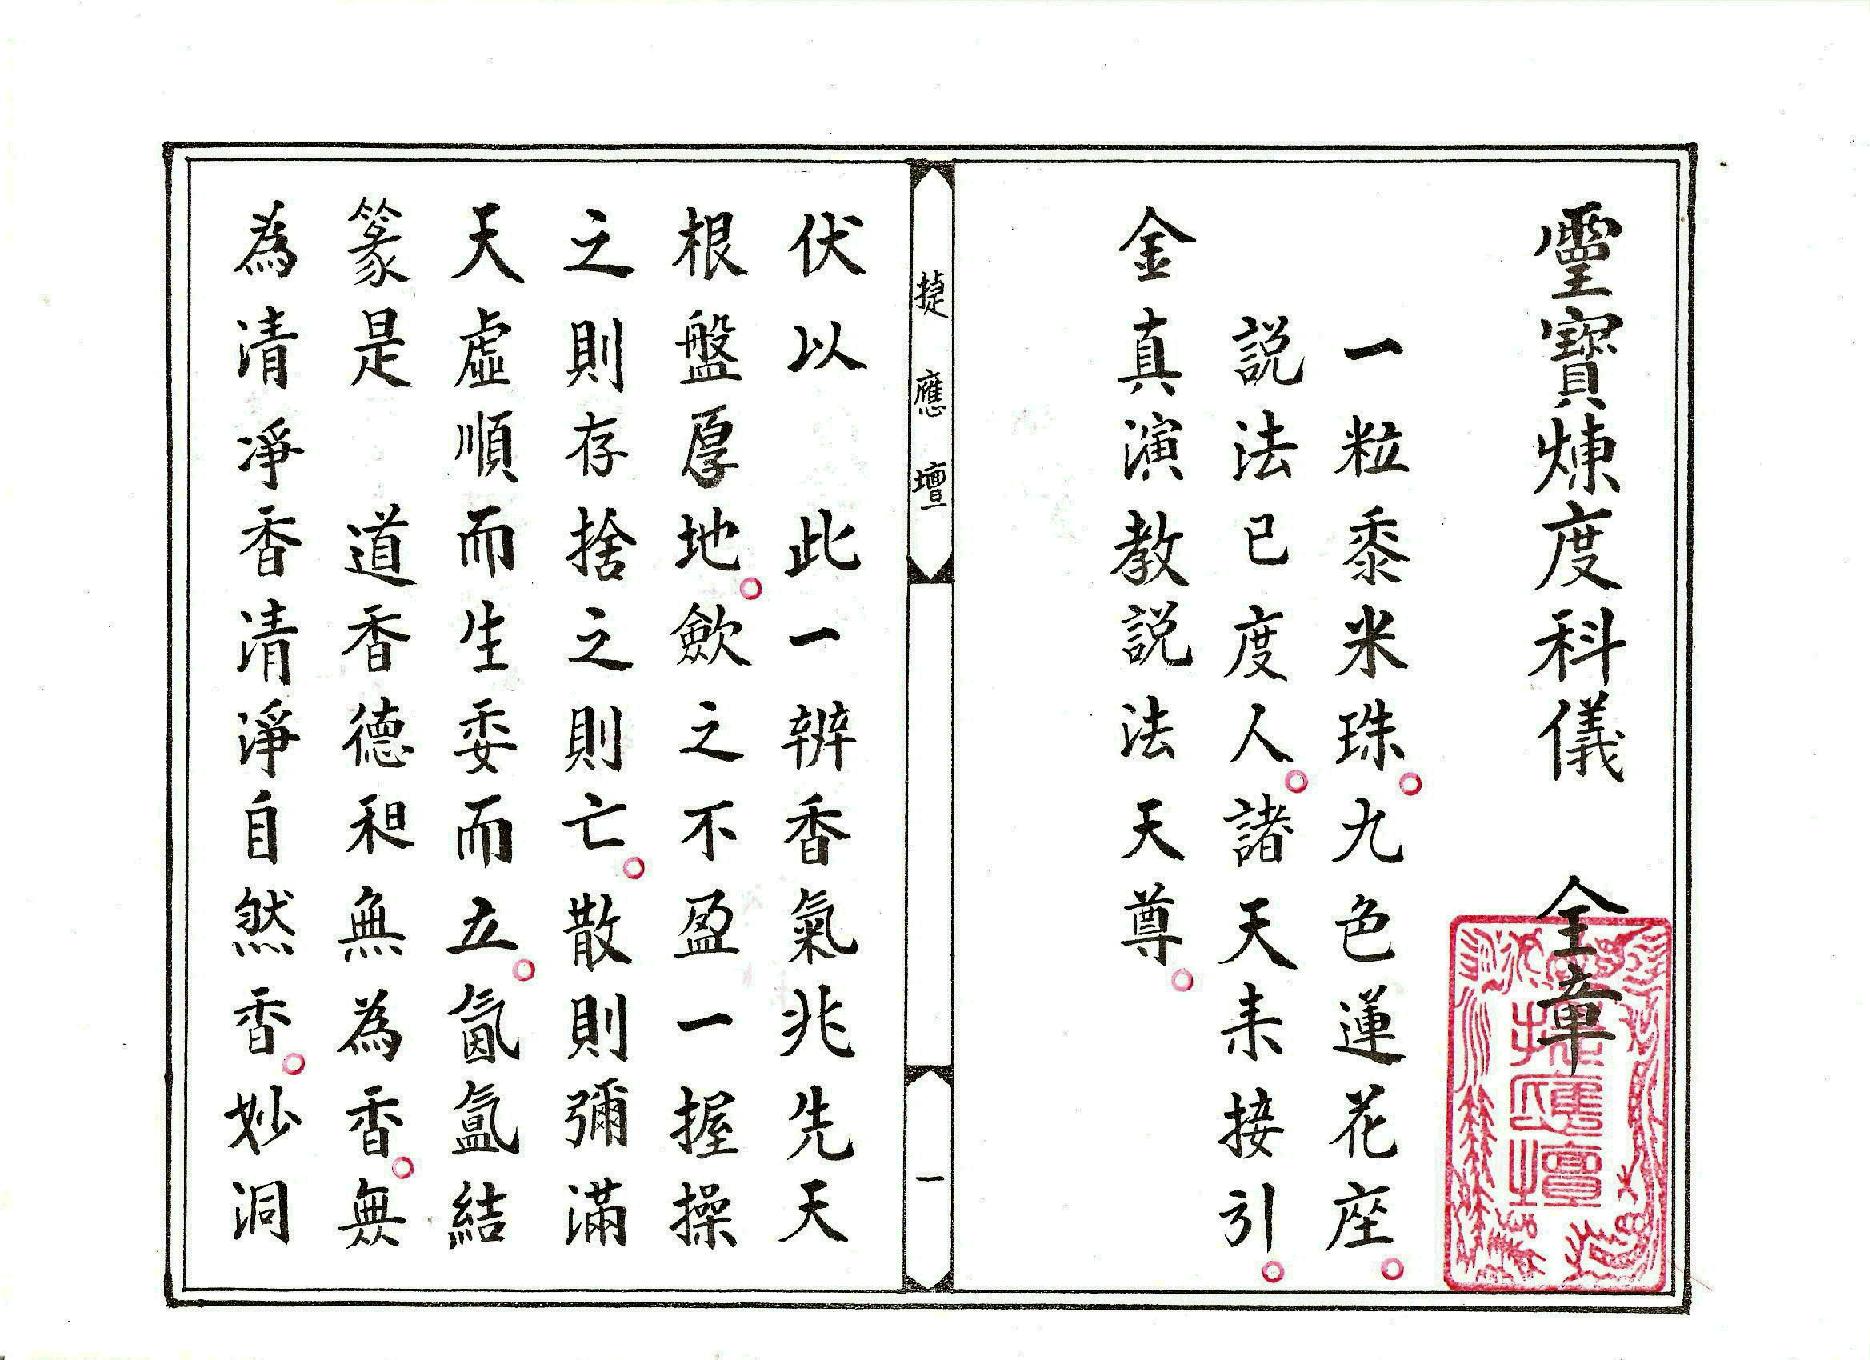 霊寶煉度科儀　全章
一粒黍米珠。九色蓮花座。
説法已度人。諸天来接引。
金真演教説法天尊。
捷應壇
一
伏以　此一辨香氣兆先天
根盤厚地。歛之不盈一握操
之則存捨之則亡。散則彌滿
天虛順而生委而立。氤氳結
篆是　道香德和無為香。無
為清凈香清淨自然香。妙洞
捷應壇